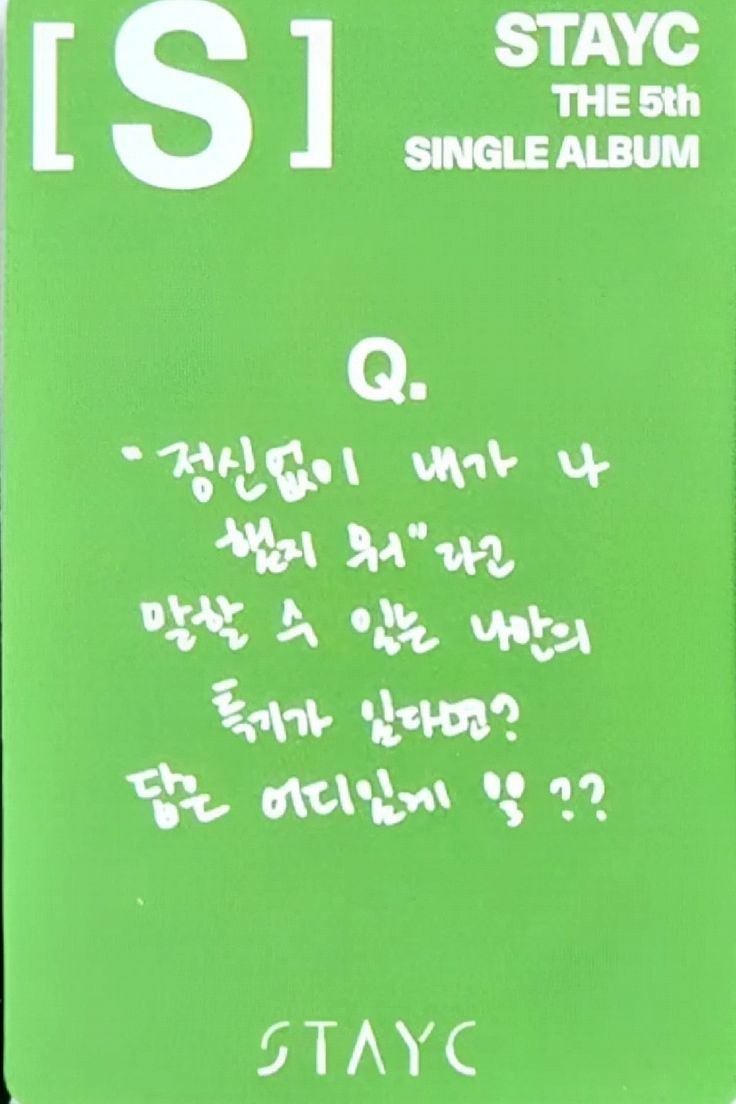 [S]
STAYC
THE 5th
SINGLE ALBUM
Q.
"정신없이 내가 나
했지 뭐"라고
말할 수 있는 나만의
특기가 있다면?
답은 어디있게 ??
STAYC